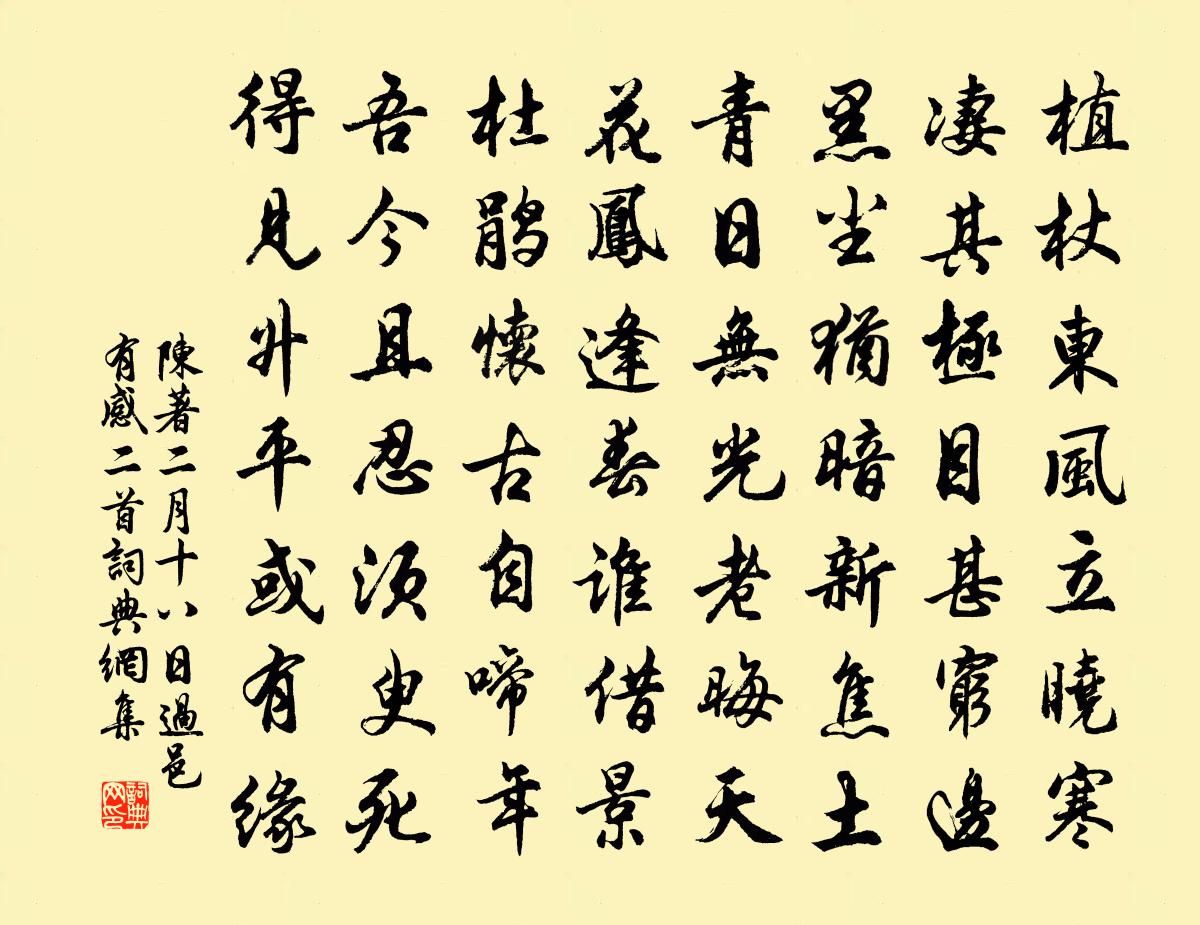 植杖東風立曉寒
淒其極目甚窮邊
黑坐猶暗新焦土
青日無光老晦天
花鳳逢春誰借景
杜鵑懷古自啼年
吾今且忍須臾死
得見升平或有緣
陳著二月十八日過邑
有感二首詞典網集
詞典
网印